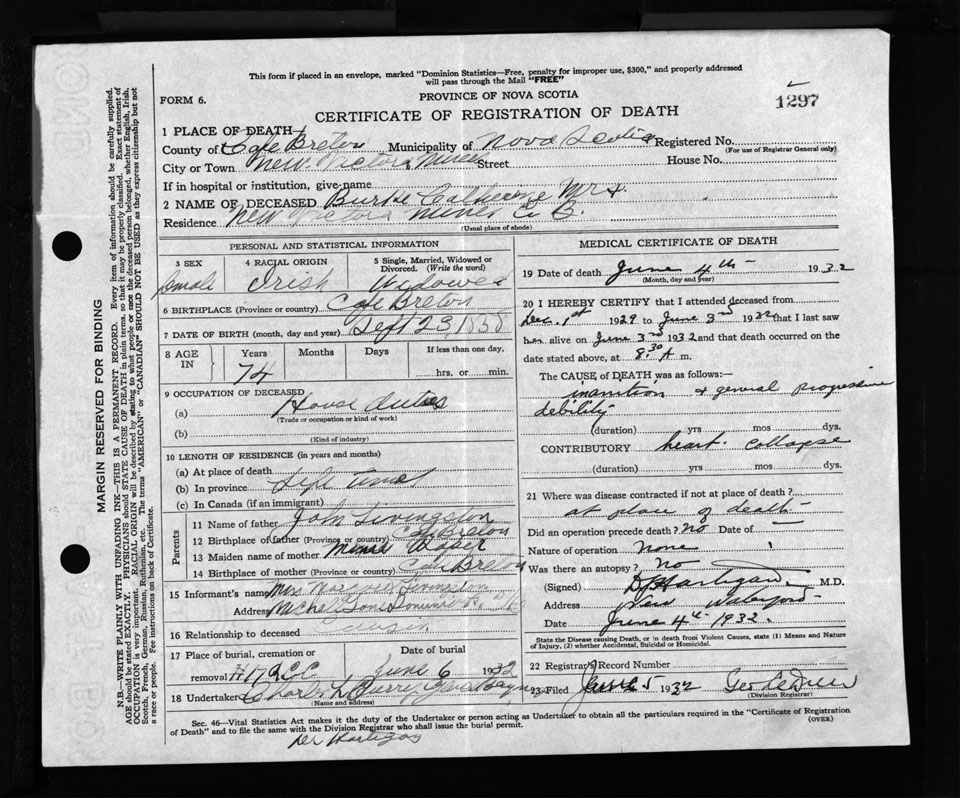 This form if placed in an envelope, marked "Dominion Statistics—Free, penalty for improper use, $300," and properly addressed
will pass through the Mail "FREE"
PROVINCE OF NOVA SCOTIA
1297
FORM 6.
CERTIFICATE OF REGISTRATION OF DEATH
1 PLACE OF DEATH
County of Cape Breton Municipality of Nova Scotia Registered No.
(For use of Registrar General only)
City or Town New Victoria Mines Street House No.
If in hospital or institution, give name
2 NAME OF DECEASED Burke Catherine Mrs.
Residence New Victoria Mines C. B.
(Usual place of abode)
PERSONAL AND STATISTICAL INFORMATION
3 SEX
4 RACIAL ORIGIN
5 Single, Married, Widowed or
Divorced. (Write the word)
Irish Widowed
6 BIRTHPLACE (Province or country) Cape Breton
7 DATE OF BIRTH (month, day and year) Sept 23, 1858
8 AGE
IN
Years
Months
Days
If less than one day,
74
hrs. or min.
9 OCCUPATION OF DECEASED
(a) House duties
(Trade or occupation or kind of work)
(b)
(Kind of industry)
10 LENGTH OF RESIDENCE (in years and months)
(a) At place of death
(b) In province Life time
(c) In Canada (if an immigrant)
Parents
11 Name of father John Livingston
12 Birthplace of father (Province or country) C. Breton
13 Maiden name of mother
14 Birthplace of mother (Province or country) Cape Breton
15 Informant's name Mrs Livingston
Address
16 Relationship to deceased Cousin
17 Place of burial, cremation or
removal
Date of burial
June 6 1932
18 Undertaker Charles L Curry
(Name and address)
MEDICAL CERTIFICATE OF DEATH
19 Date of death June 4th 1932
(Month, day and year)
20 I HEREBY CERTIFY that I attended deceased from
Dec. 1st 1929 to June 3rd 1932 that I last saw
her alive on June 3rd 1932 and that death occurred on the
date stated above, at 8.30 A m.
The CAUSE of DEATH was as follows:—
inanition & general progressive
debility
(duration) yrs mos dys.
CONTRIBUTORY heart collapse
(duration) yrs mos dys.
21 Where was disease contracted if not at place of death?
at place of death
Did an operation precede death? No Date of —
Nature of operation None
Was there an autopsy? No
(Signed) Hartigan M.D.
Address New Waterford
Date June 4th 1932.
State the Disease causing Death, or in death from Violent Causes, state (1) Means and Nature
of Injury, (2) whether Accidental, Suicidal or Homicidal.
22 Registrar's Record Number
23 Filed June 5 1932
(Division Registrar)
Sec. 46—Vital Statistics Act makes it the duty of the Undertaker or person acting as Undertaker to obtain all the particulars required in the "Certificate of Registration
of Death" and to file the same with the Division Registrar who shall issue the burial permit.
(OVER)
Dr Hartigan
MARGIN RESERVED FOR BINDING
N.B.—WRITE PLAINLY WITH UNFADING INK—THIS IS A PERMANENT RECORD. Every item of information should be carefully supplied.
AGE should be stated EXACTLY. PHYSICIANS should STATE CAUSE OF DEATH in plain terms, so that it may be properly classified. Exact statement of
OCCUPATION is very important. RACIAL ORIGIN will be described by stating to what people or race the deceased person belonged, whether English, Irish,
Scotch, French, German, Russian, Ruthenian, etc. The terms "AMERICAN" or "CANADIAN" SHOULD NOT BE USED as they express citizenship but not
a race or people. Fee instructions on back of Certificate.